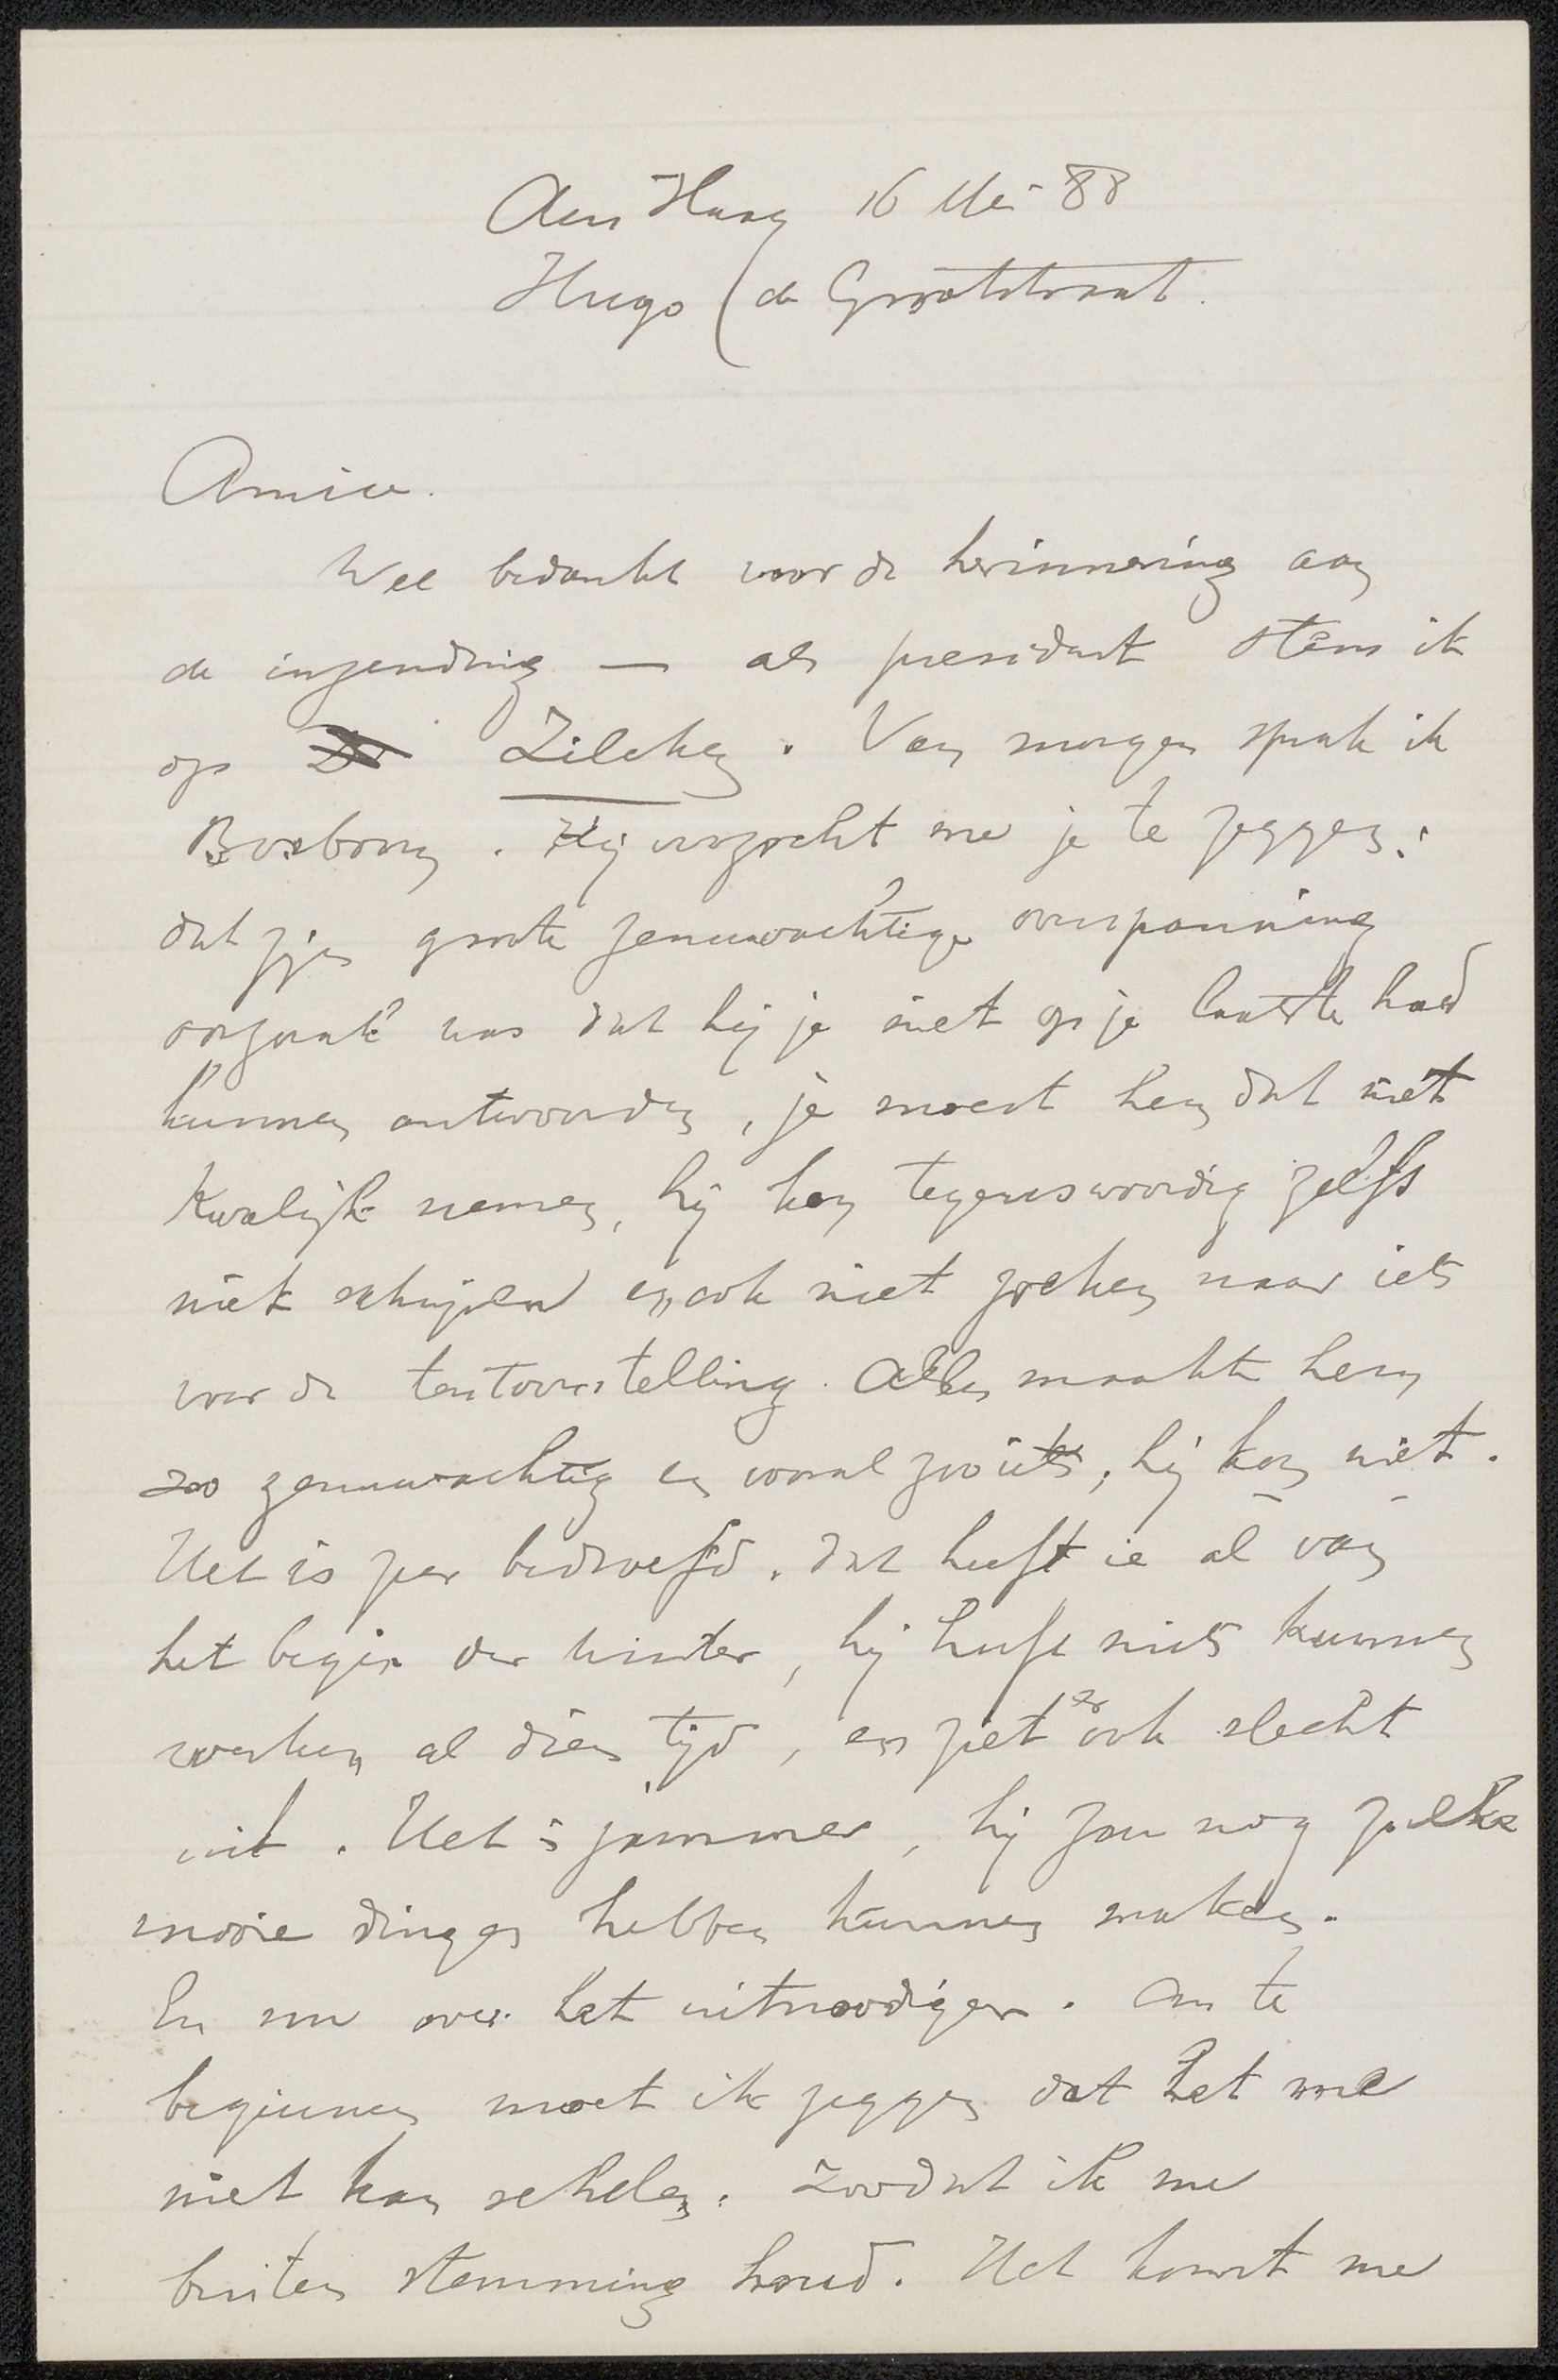 Den Haag 16 Mei 88
Hugo de Grootstraat.
Amice.
Wel bedankt voor de herinnering aan
de inzending — als president stem ik
op Zilcken. Van morgen sprak ik
Bosboom. Hij verzocht me je te zeggen:
dat zijn groote zenuwachtige overspanning
oorzaak was dat hij je niet op je laatste had
kunnen antwoorden, je moest hem dat niet
kwalijk nemen, hij kan tegenswoordig zelfs
niet schrijven en ook niet zoeken naar iets
voor de tentoonstelling. Alles maakte hem
zoo zenuwachtig en vooral zoo iets, hij kan niet.
Het is zeer bedroefd. Dat heeft ie al van
het begin der winter, hij heeft niets kunnen
werken al dien tijd, en ziet er ook slecht
uit. Het is jammer, hij zou nog zulke
mooie dingen hebben kunnen maken.
En nu over het uitnoodigen. Om te
beginnen moet ik zeggen dat het me
niet kan schelen. Zoodat ik me
buiten stemming houd. Het komt me